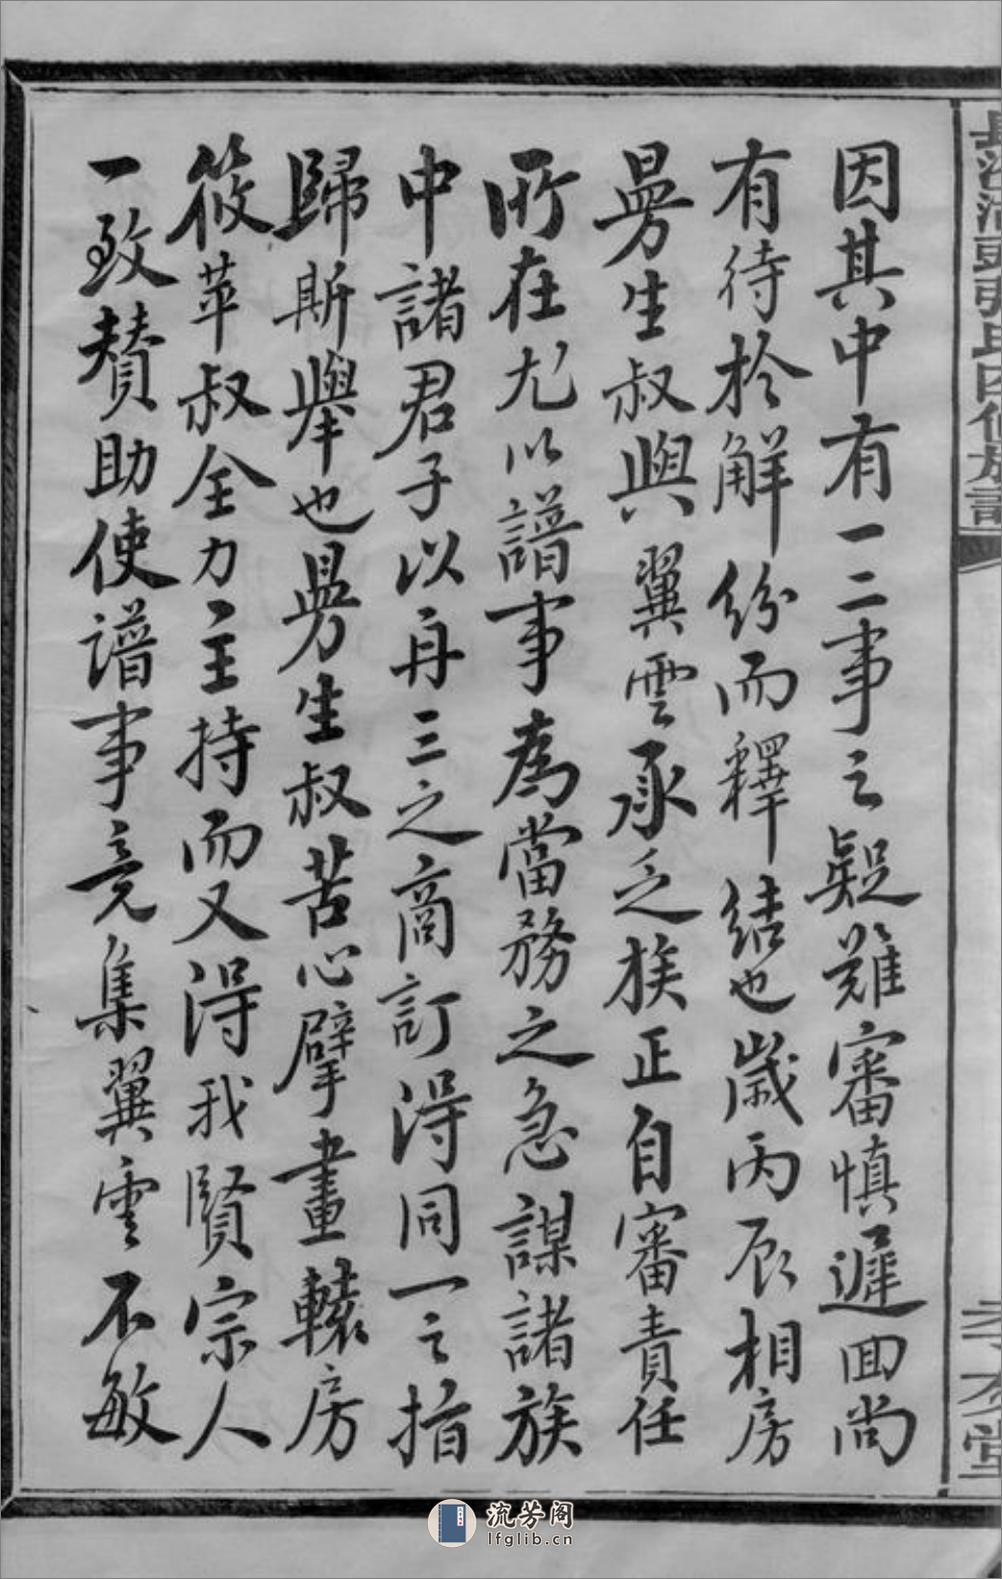 因其中有一二事之疑難審慎遲回尚
有待於解紛而釋結也歲丙辰相房
昜生叔與翼雲承乏族正自審責任
所在尤以譜事為當務之急謀諸族
中諸君子以再三之商訂得同一之指
歸斯舉也昜生叔苦心擘畫轅房
筱苹叔全力主持而又得我賢宗人
一致贊助使譜事竟集翼雲不敏
長沙
張氏四修族譜
孝友堂
流芳阁
lfglib.cn